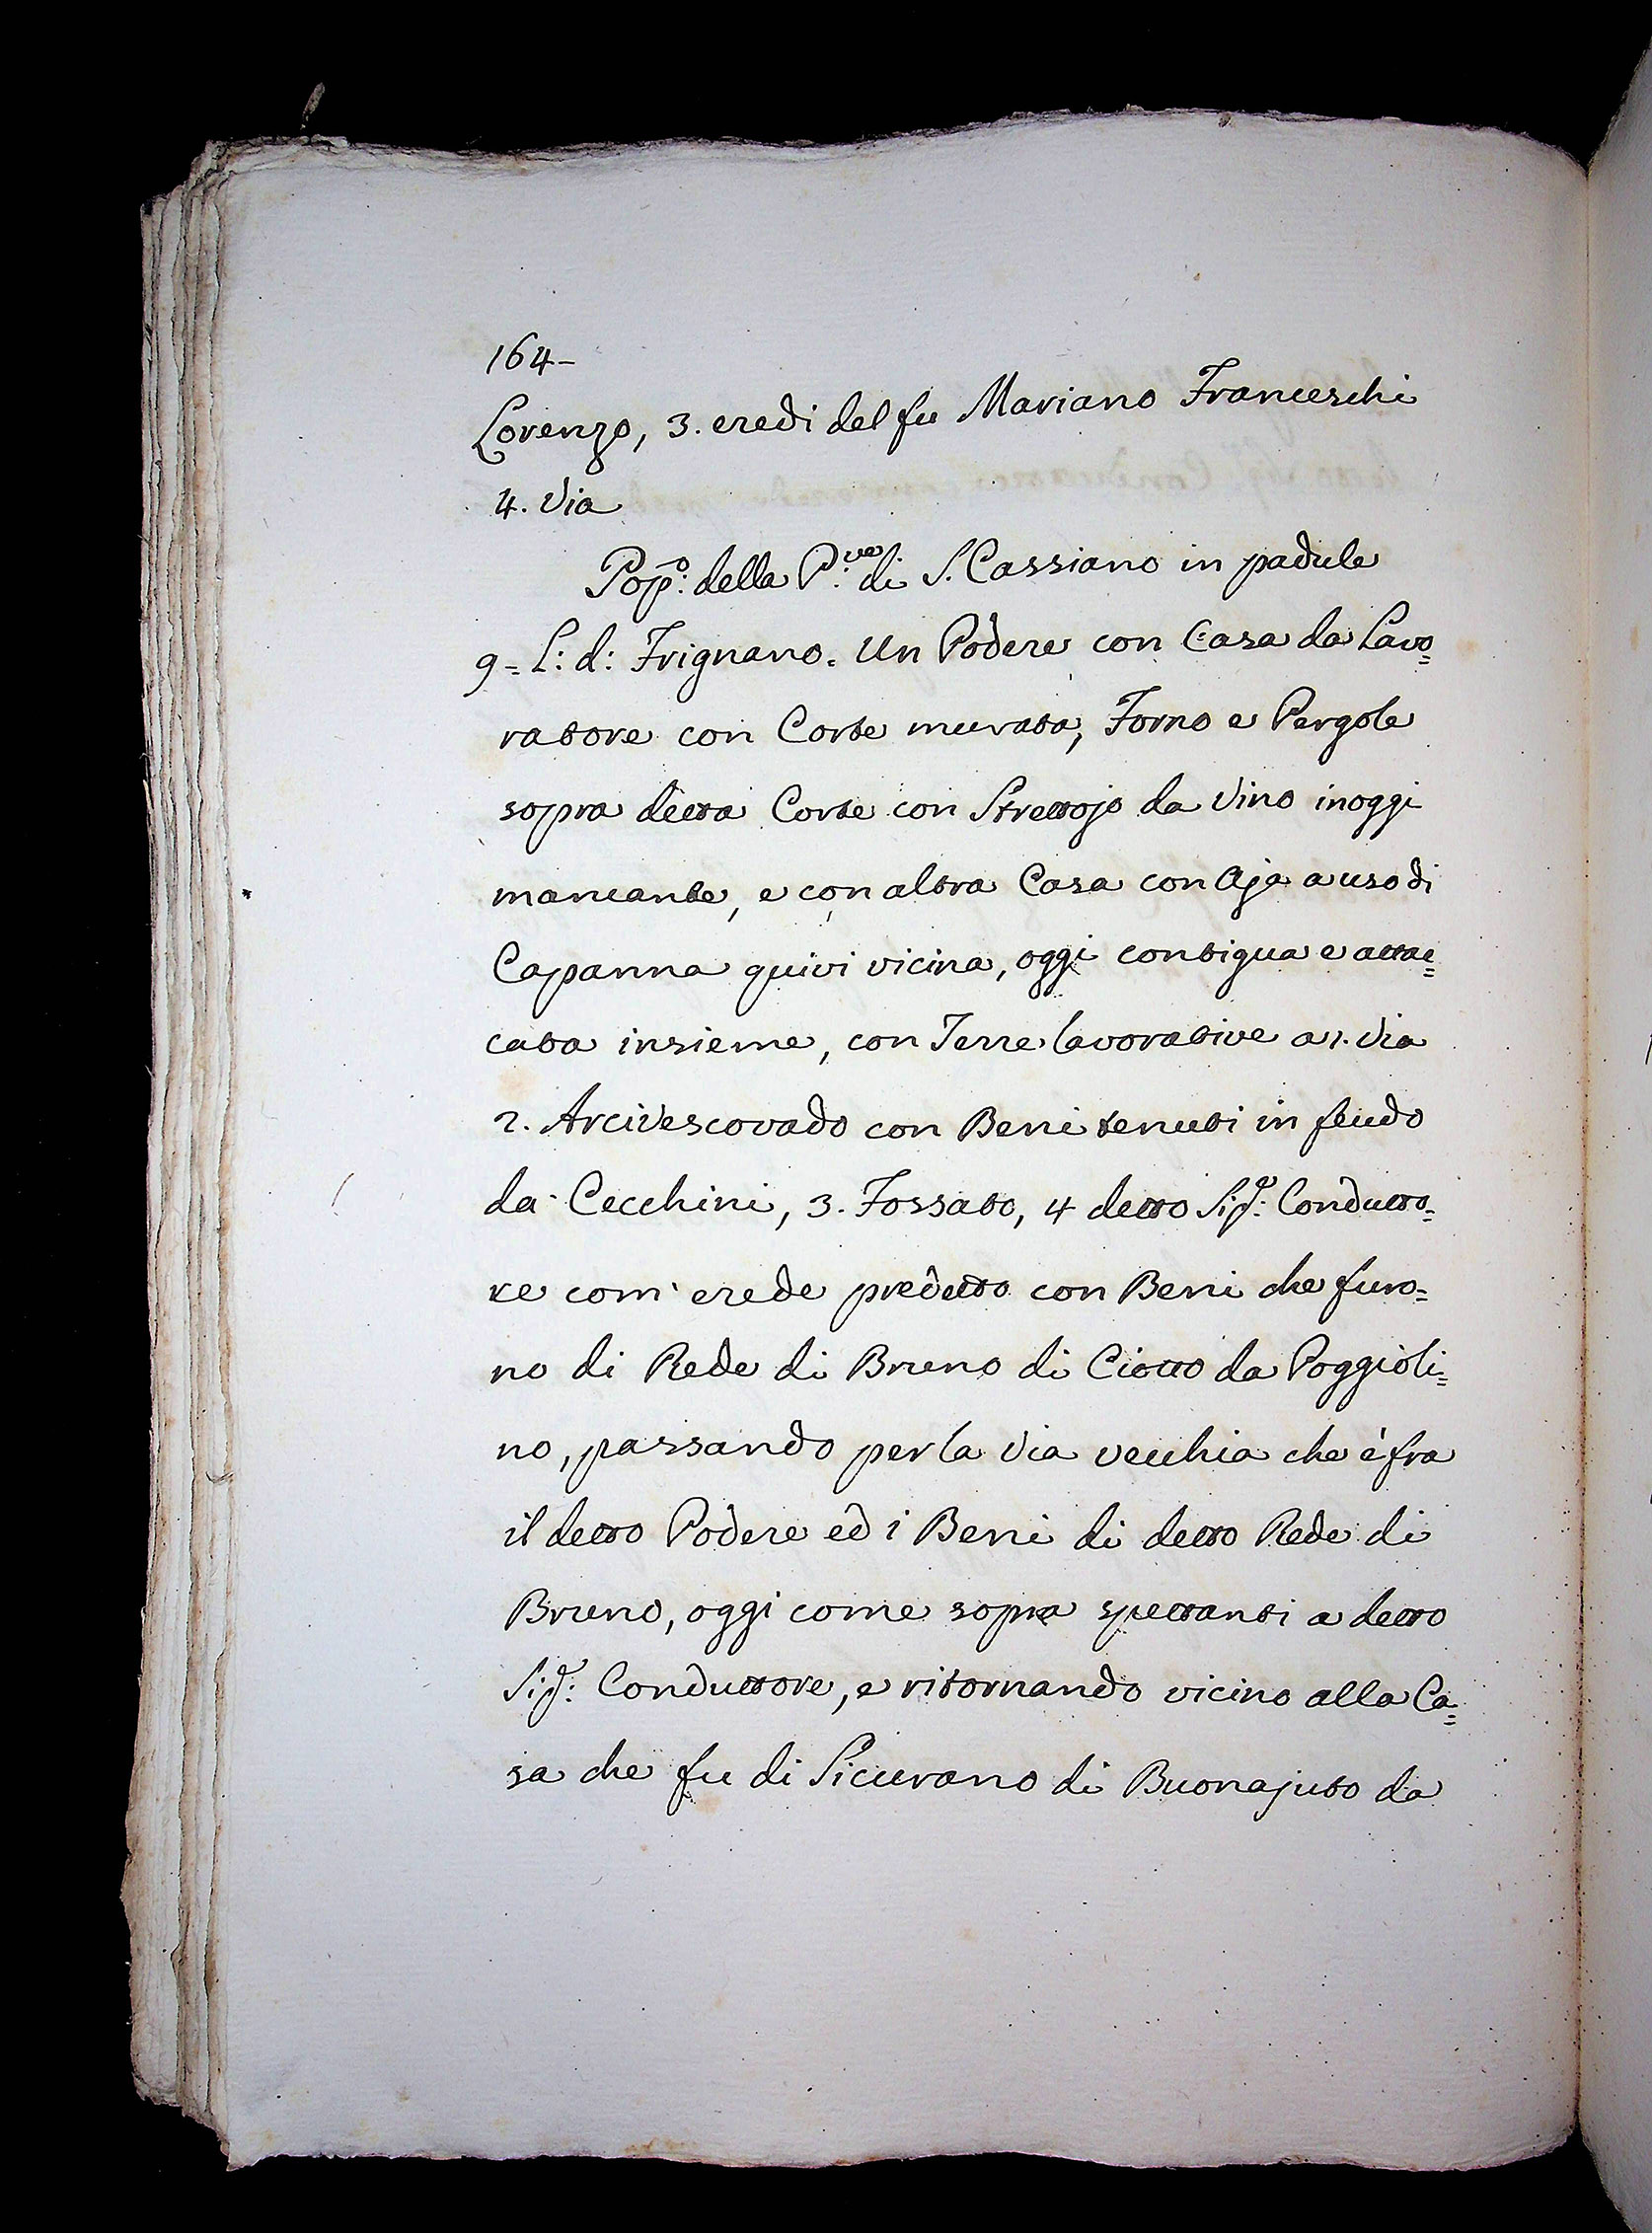 164-
Lorenzo, 3. eredi del fu Mariano Franceschi
4. Via
Pop.o: della P.ve: di S. Cassiano in padule
9= L: d: Frignano. Un Podere con Casa da Lavo=
ratore con Corte murata, Forno e Pergole
sopra detta Corte con Strettojo da Vino inoggi
mancante, e con altra Casa con Aja a uso di
Capanna quivi vicina, oggi contigua e attac=
cata insieme, con Terre lavorative a 1. Via
2. Arcivescovado con Beni tenuti in feudo
da Cecchini, 3. Fossato, 4 detto Sig.e: Condutto=
re com' erede predetto con Beni che furo=
no di Rede di Bruno di Ciotto da Poggioli=
no, passando per la Via vecchia che è fra
il detto Podere ed i Beni di detto Rede di
Bruno, oggi come sopra spettanti a detto
Sig.e: Conduttore, e ritornando vicino alla Ca=
sa che fu di Sicurano di Buonajuto da